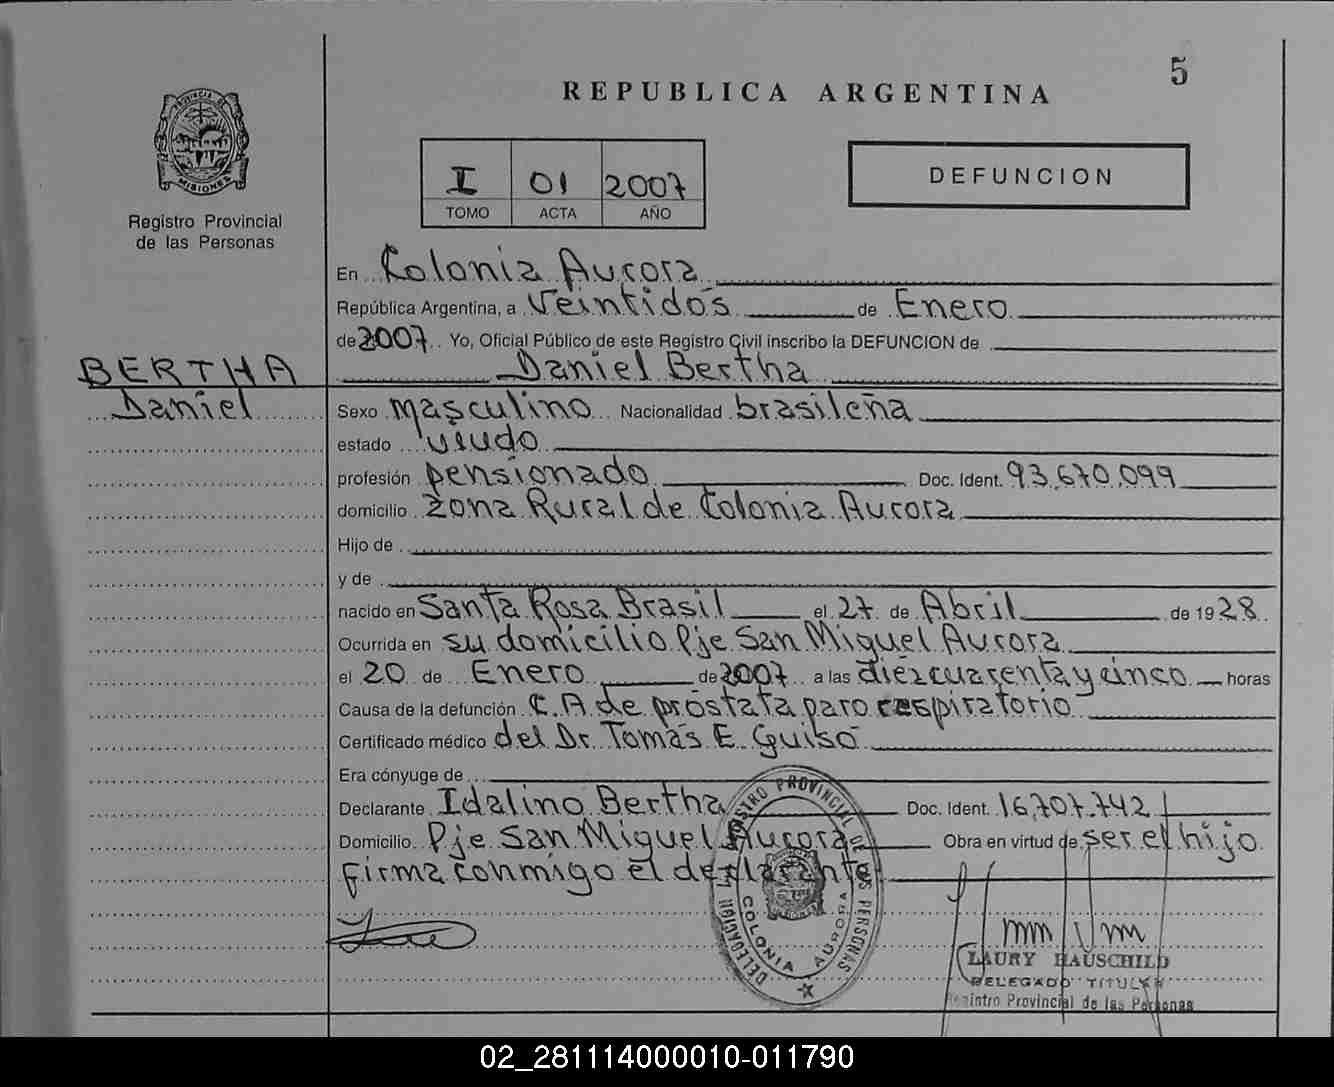 5
REPUBLICA ARGENTINA
PROVINCIA DE
MISIONES
Registro Provincial
de las Personas
I 01 2007
TOMO ACTA AÑO
DEFUNCION
En Colonia Aurora
República Argentina, a Veintidós de Enero
de 2007 Yo, Oficial Público de este Registro Civil inscribo la DEFUNCION de
BERTHA Daniel Bertha
Daniel Sexo masculino Nacionalidad brasileña
estado viudo
profesión pensionado Doc. Ident. 93,670,099
domicilio zona Rural de Colonia Aurora
Hijo de
y de
nacido en Santa Rosa Brasil el 27 de Abril de 1928
Ocurrida en su domicilio Pje San Miguel Aurora
el 20 de Enero de 2007 a las diez cuarenta y cinco horas
Causa de la defunción C.A de próstata paro respiratorio
Certificado médico del Dr. Tomás E. Guiso
Era cónyuge de
Declarante Idalino Bertha Doc. Ident. 16,707.742
Domicilio Pje San Miguel Aurora Obra en virtud de ser el hijo
firma conmigo el declarante
DELEGACION REGISTRO PROVINCIAL DE LAS PERSONAS
COLONIA AURORA
LAURY HAUSCHILD
DELEGADO TITULAR
Registro Provincial de las Personas
02_281114000010-011790